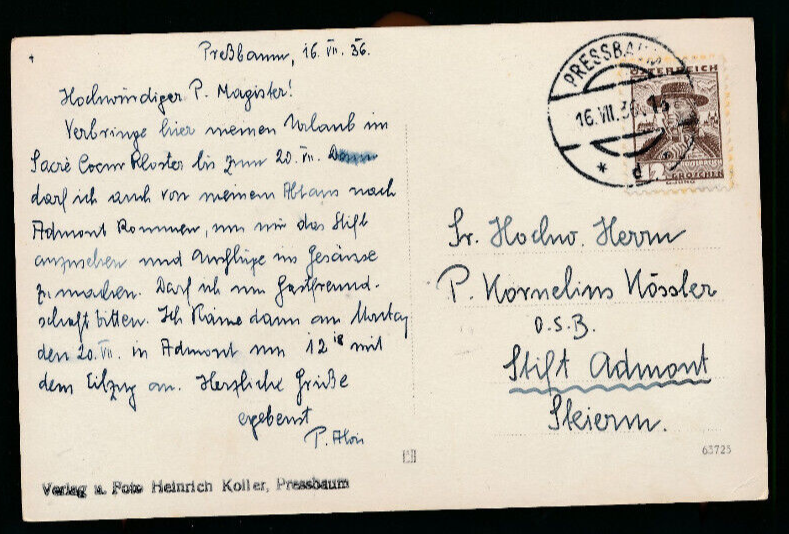 Preßbaum, 16. VII. 36.
Hochwürdiger P. Magister!
Verbringe hier meinen Urlaub im
Sacré Coeur Kloster bis zum 20. VII. Dann
darf ich auch von meinem Abt aus nach
Admont kommen, um mir das Stift
anzusehen und Ausflüge ins Gesäuse
zu machen. Darf ich um Gastfreund-
schaft bitten. Ich käme dann am Montag
den 20. VII. in Admont um 12 18 mit
dem Eilzug an. Herzliche Grüße
ergebenst
P. Alois
Verlag u. Foto Heinrich Koller, Pressbaum
PRESSBAUM
16.VII.36
* d
ÖSTERREICH
12
GROSCHEN
Sr. Hochw. Herrn
P. Kornelius Kössler
O.S.B.
Stift Admont
Steierm.
63725